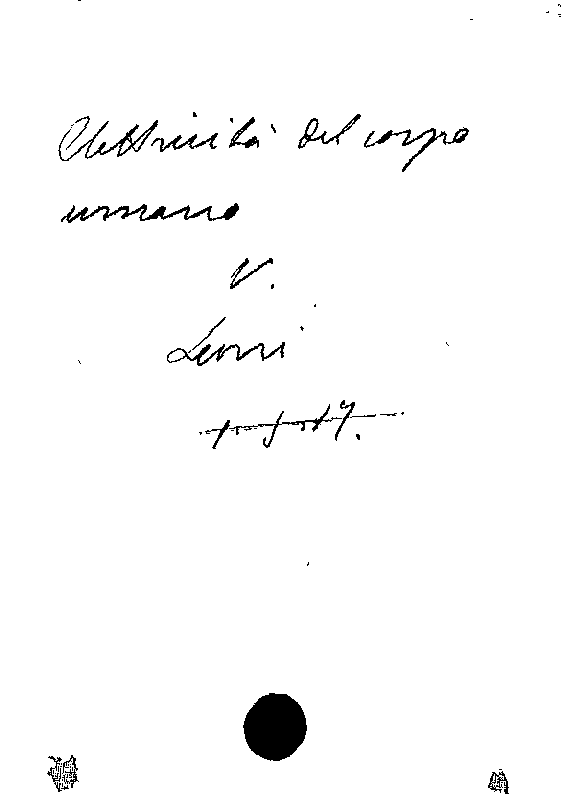 Elettricità del corpo
umano
V.
Leoni